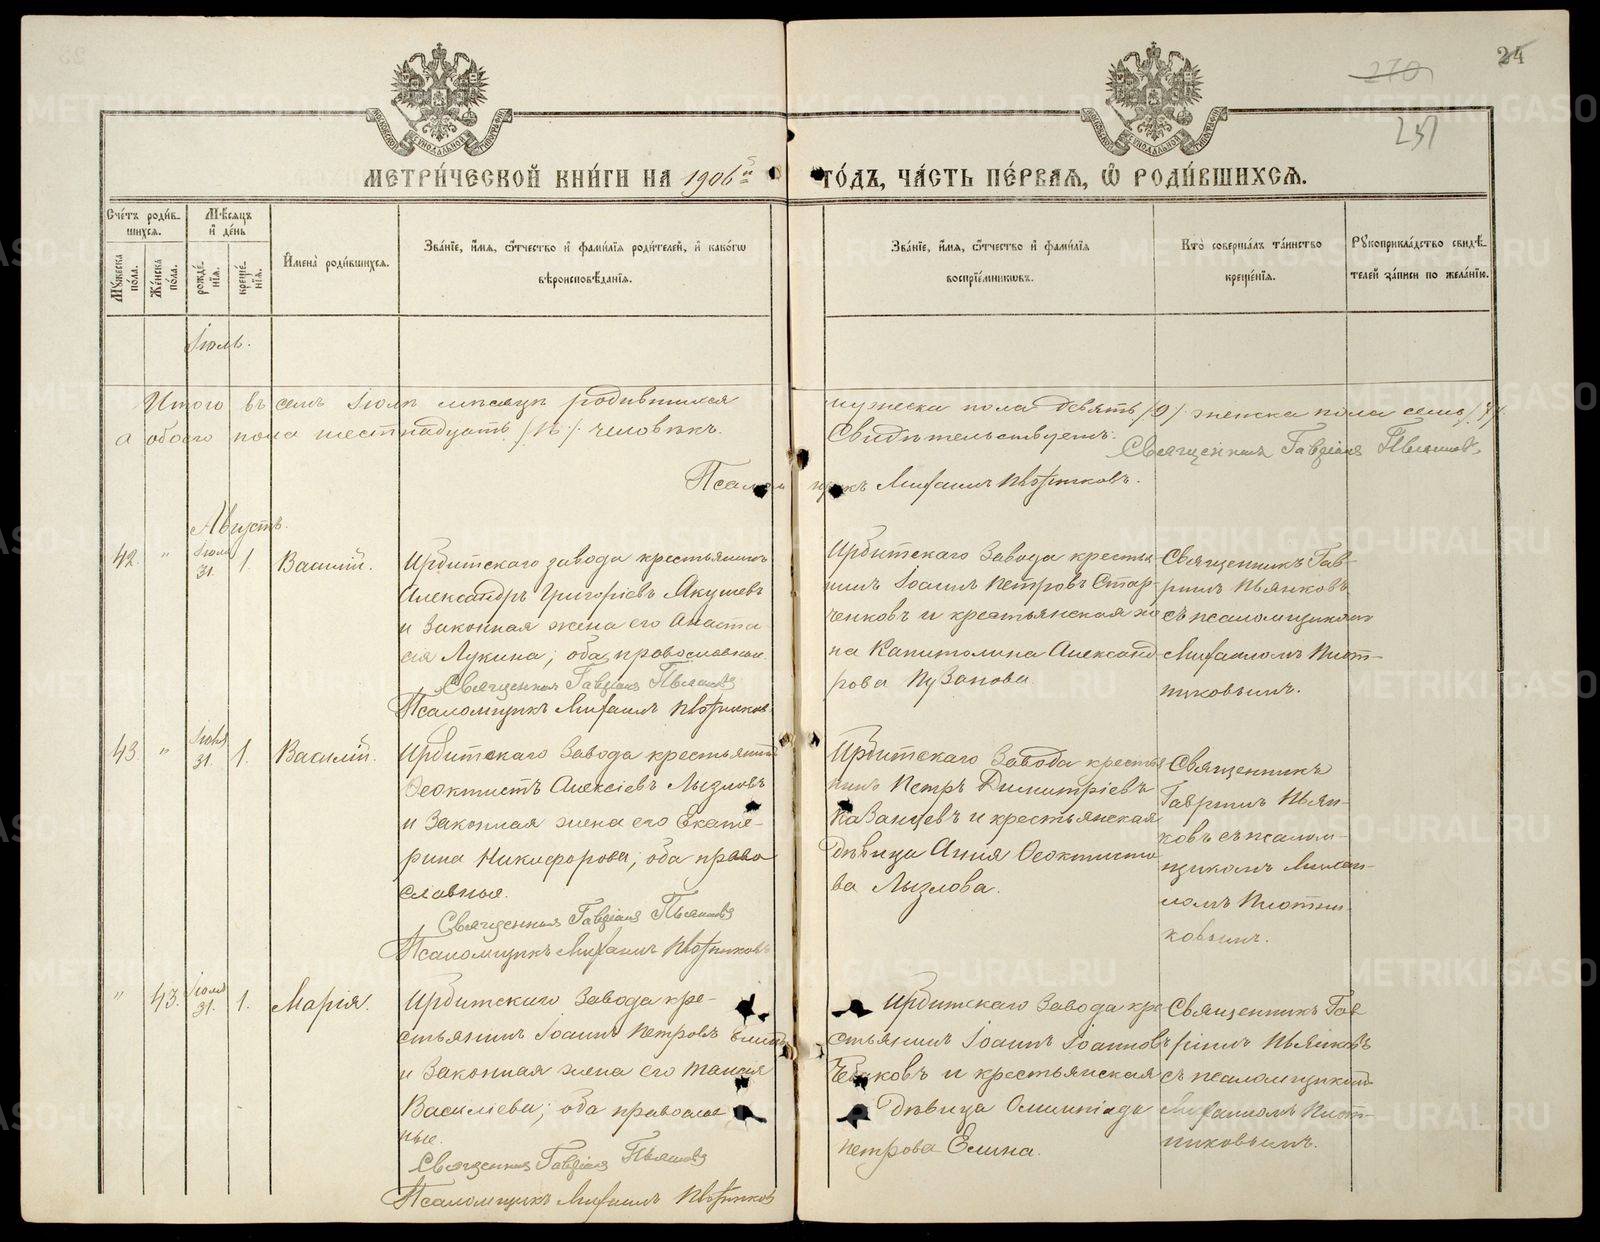 24
270
237
МЕТРИ́ЧЕСКОЙ КНИ́ГИ НА 1906й ГО́ДЪ, ЧА́СТЬ ПЕ́РВАЯ, Ѡ҆ РОДИ́ВШИХСЯ.
Сче́тъ роди́в-
шихся.
Мѣ́сяцъ
и҆ де́нь
Мꙋ́жеска
по́ла.
Же́нска
по́ла.
рожде́-
нїя.
креще́-
нїя.
И҆мена̀ роди́вшихся.
Зва́нїе, и҆́мя, ѻ҆́тчество и҆ фами́лїя роди́телей, и҆ како́гѡ
вѣроисповѣ́данїя.
Зва́нїе, и҆́мя, ѻ҆́тчество и҆ фами́лїя
воспрїе́мниковъ.
Кто̀ соверша́лъ та́инство
креще́нїя.
Рꙋкоприкла́дство свидѣ́-
телей за́писи по жела́нїю.
Іюль.
Итого въ семъ Іюлѣ мѣсяцѣ родившихся мужеска пола девять /9/ женска пола семь /7/
а обоего пола шестнадцать /16/ человѣкъ. Свидѣтельствуемъ:
Священникъ Гавріилъ Пьянковъ
Псаломщикъ Михаилъ Плотниковъ.
Августъ.
42. " Іюля 31. 1. Василій.
Ирбитскаго завода крестьянинъ
Александръ Григоріевъ Якушевъ
и законная жена его Анаста
сія Лукина; оба православные
Священникъ Гавріилъ Пьянковъ
Псаломщикъ Михаилъ Плотниковъ
Ирбитскаго Завода кресть
нинъ Іоаннъ Петровъ Стар-
ченковъ и крестьянская же
на Капитолина Александ
рова Пузанова
Священникъ Гав-
ріилъ Пьянковъ
съ псаломщикомъ
Михаиломъ Плот-
никовымъ.
43. " Іюля 31. 1. Василій.
Ирбитскаго Завода крестьянинъ
Ѳеоктистъ Алексіевъ Лызловъ
и Законная жена его Екате-
рина Никифорова; оба право
славные.
Священникъ Гавріилъ Пьянковъ
Псаломщикъ Михаилъ Плотниковъ
Ирбитскаго Завода кресть
нинъ Петръ Димитріевъ
Казанцевъ и крестьянская
дѣвица Анна Ѳеоктисто
ва Лызлова.
Священникъ
Гавріилъ Пьян-
ковъ съ псалом-
щикомъ Михаи-
ломъ Плотни-
ковымъ.
" 43. Іюля 31. 1. Марія.
Ирбитскаго Завода кре-
стьянинъ Іоаннъ Петровъ Елинъ
и Законная жена его Таисія
Василіева; оба православ
ные.
Священникъ Гавріилъ Пьянковъ
Псаломщикъ Михаилъ Плотниковъ
Ирбитскаго Завода кре
стьянинъ Іоаннъ Іоанновъ
и крестьянская
дѣвица Олимпіада
Петрова Елина.
Священникъ Гав
ріилъ Пьянковъ
съ псаломщикомъ
Михаиломъ Плот-
никовымъ.
METRIKI.GASO-URAL.RU